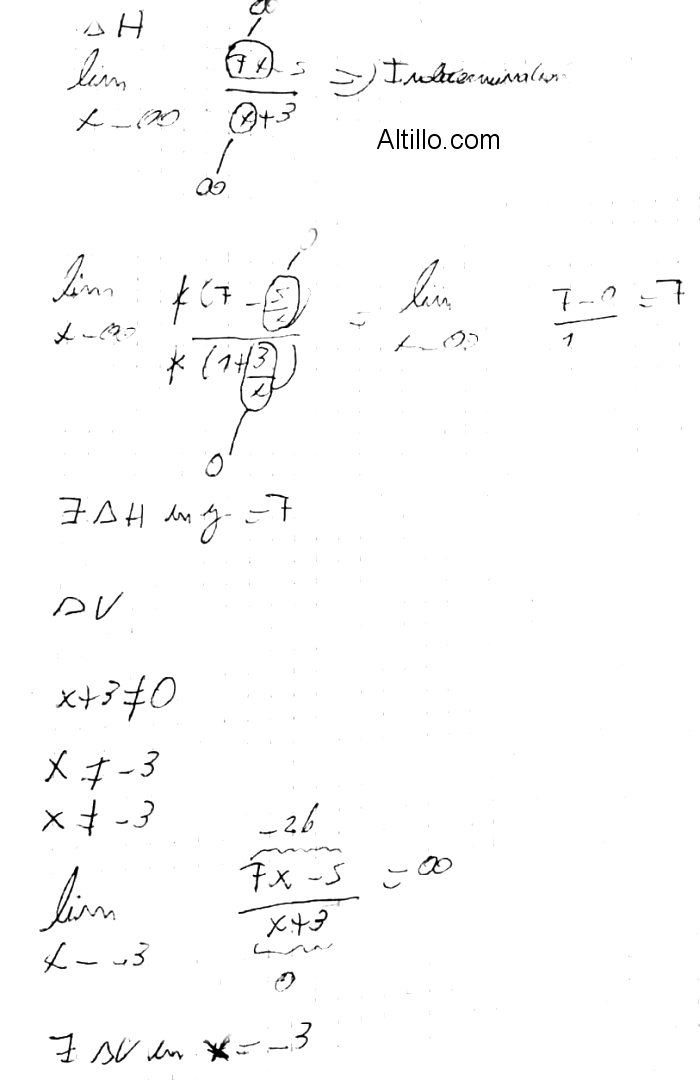 ΔH
∞
lim 7x-5 / x+3 => Indeterminación
x→∞
∞
Altillo.com
0
lim x(7 - 5/x) / x(1+3/x) = lim 7-0 / 1 = 7
x→∞ x→∞
0
∃ ΔH en y = 7
ΔV
x+3≠0
x ≠ -3
x ≠ -3
-26
lim 7x-5 / x+3 = ∞
x→-3
0
∃ ΔV en x = -3